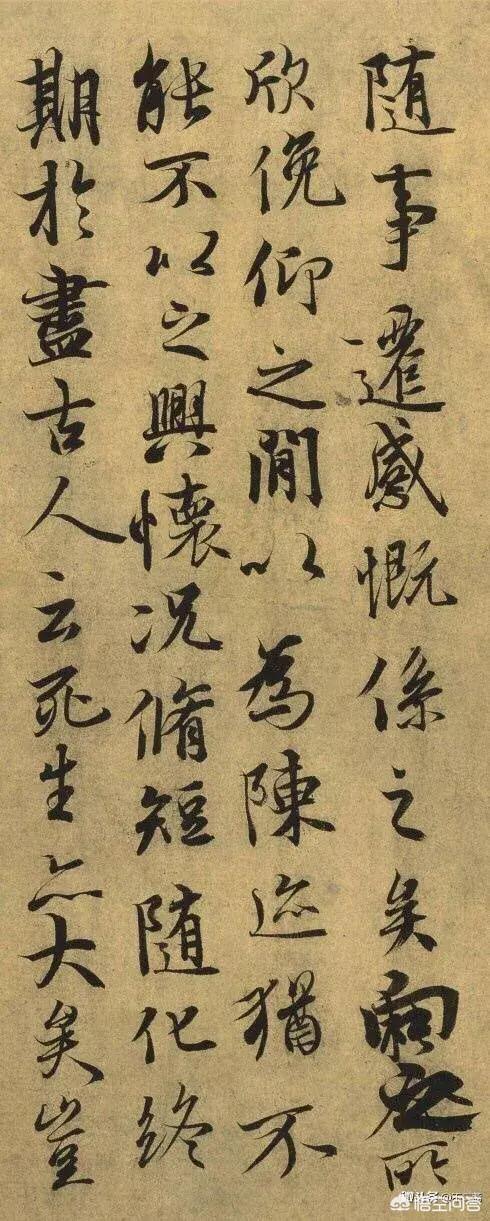 随事遷感慨係之矣向之所
欣俛仰之閒以為陳迹猶不
能不以之興懷况脩短随化終
期於盡古人云死生亦大矣豈
悟空问答